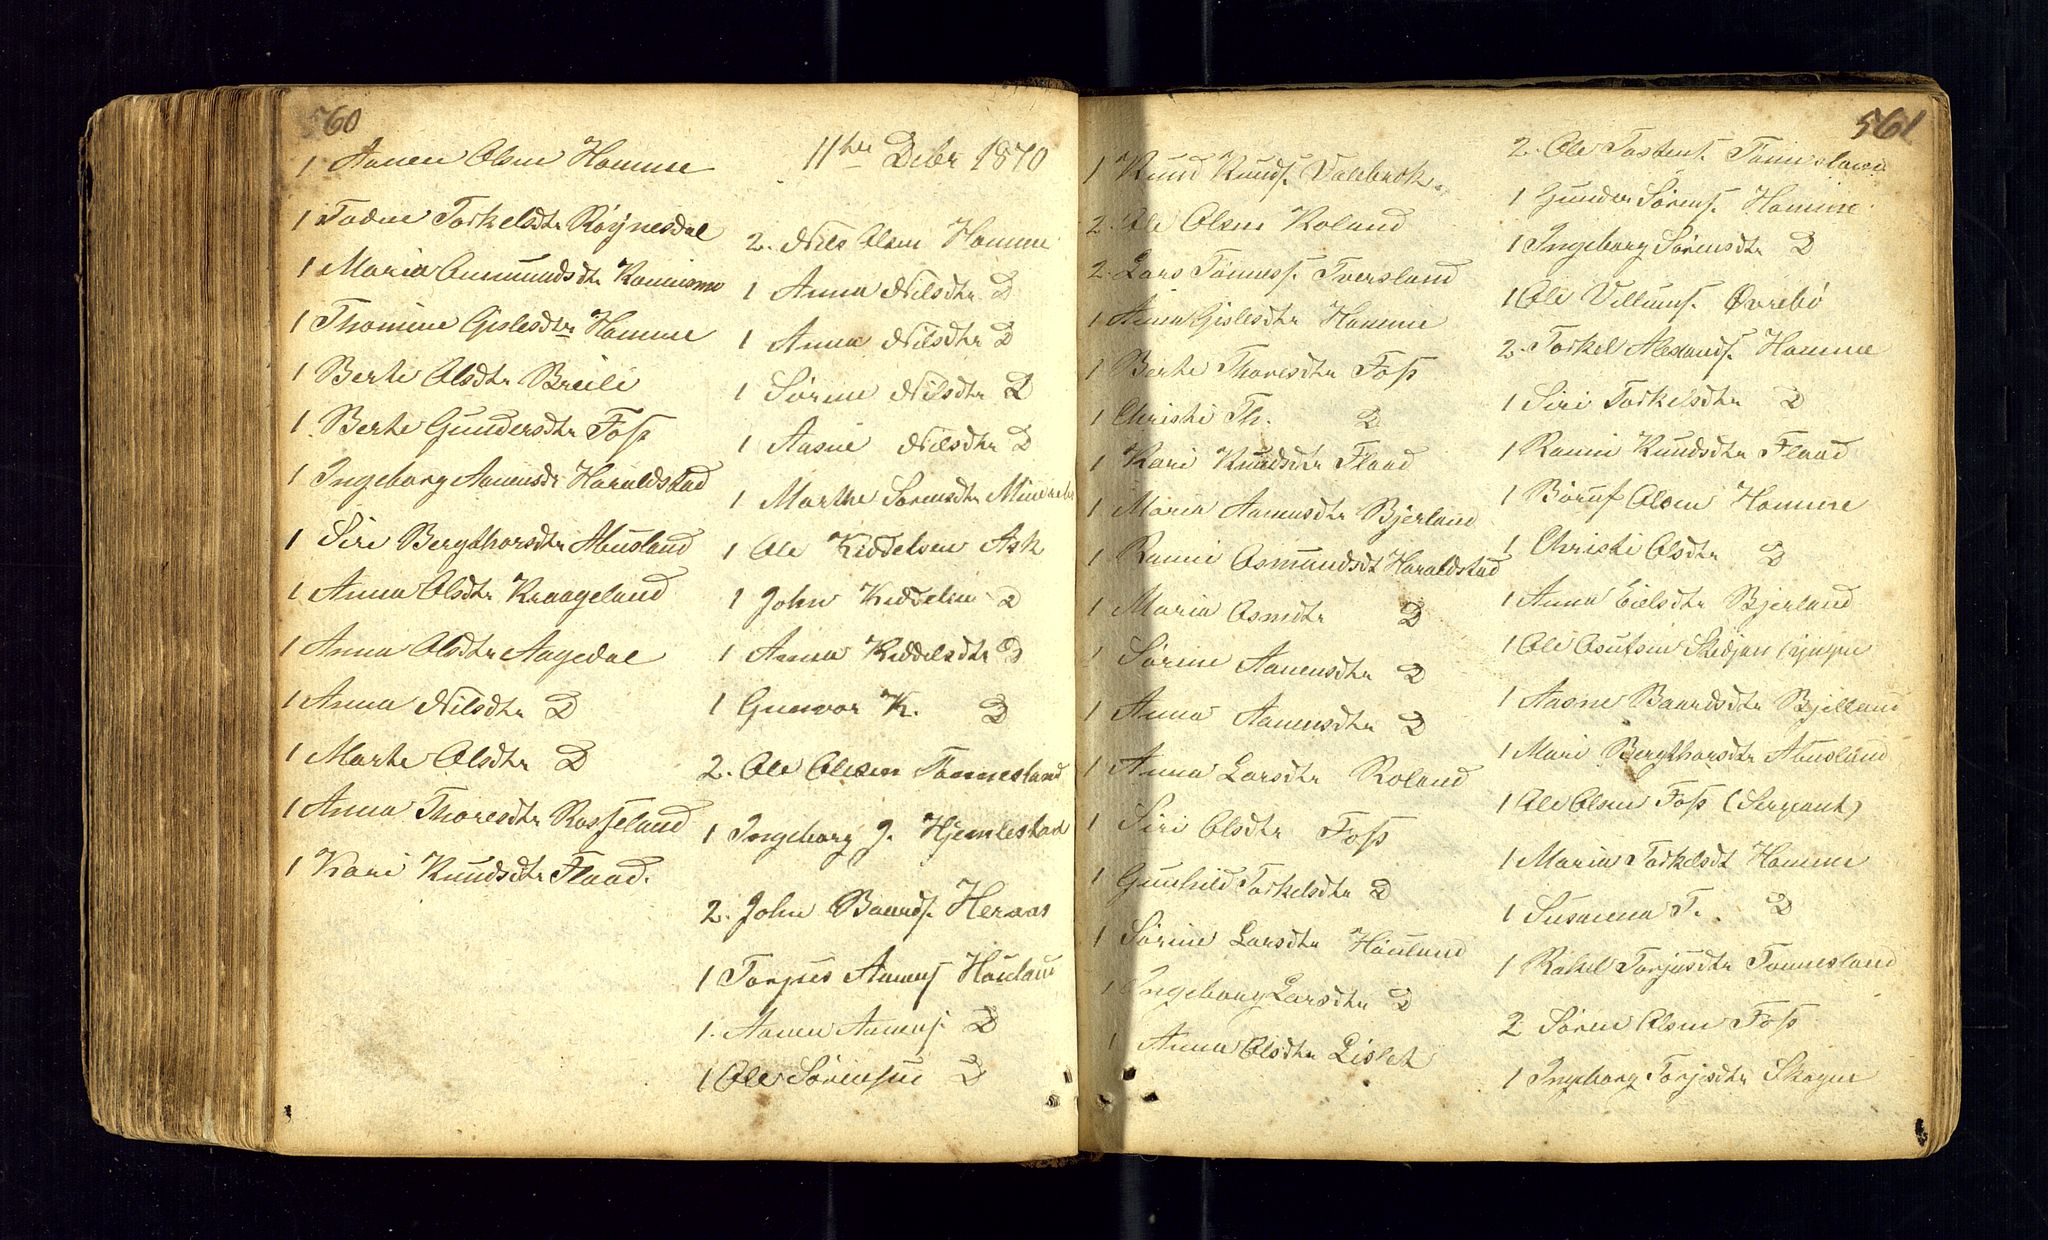 560
1 Aanen Olsen Homme
1 Todne Torkelsdtr Röynesdal
1 Maria Aanundsdtr
1 Thomine Gislesdtr Homme
1 Berte Olsdtr Breili
1 Berte Gundersdtr Foss
1 Ingeborg Aanensdr Haraldstad
1 Siri Bergthorsdtr Abusland
1 Anna Olsdtr Kraageland
1 Anna Olsdtr Aagedal
1 Anna Nilsdtr D
1 Marte Olsdtr D
1 Anna Thoresdtr Rosseland
1 Kari Knudsdtr Flaad.
11te Decbr 1870
2. Nils Olsen Homme
1 Anna Nilsdtr D
1 Anna Nilsdtr D
1 Sörine Nilsdtr D
1 Aasne Nilsdtr D
1 Marthe Sörensdtr
1 Ole Kiddelsen Ask
1 John Kiddelsen D
1 Anna Kiddelsdtr D
1 Gunvor K. D
2. Ole Olesen Tonnesland
1 Ingeborg J. Hjemlestad
2. John Baards. Heraas
1 Torjus Aanens. Höuland
1. Aanen Aanens. D
1 Ole Sörensen D
561
1 Knud Knuds. Valebrok.
2. Ole Olsen Roland
2. Lars Tönness. Tversland
1 Anna Gislesdtr Homme
1 Berte Thoresdtr Foss
1 Christi Th. D
1 Kari Knudsdtr Flaad
1 Maria Aanensdtr Bjerland
1 Ranni Osmundsdt Haraldstad
1 Maria Osmdtr D
1 Sörine Aanensdtr D
1 Anna Aanensdtr D
1 Anna Larsdtr Roland
1 Siri Olsdtr Foss
1 Gunhild Torkelsdtr D
1 Sörine Larsdtr Höuland
1 Ingeborg Larsdtr D
1 Anna Olsdtr Lislet
2. Ole Tostens. Tonnesland
1 Gunder Sörens. Homme
1 Ingeborg Sörensdtr D
1 Ole Villums. Øvrebö
2. Torkel Alexands. Homme
1 Siri Torkelsdtr D
1 Ranni Knudsdtr Flaad
1 Böruf Olsen Homme
1 Christi Olsdtr D
1 Anna Eielsdtr Bjerland
1 Ole Osufsen
1 Aasne Baardsdtr Bjelland
1 Mari Bergthorsdtr Abusland
1 Ole Olsen Foss (Sergeant)
1 Maria Torkelsdt Homme
1 Susanna T. D
1 Rakel Torjusdtr Tonnesland
2 Sören Olsen Foss
1 Ingeborg Torjusdtr Skogen